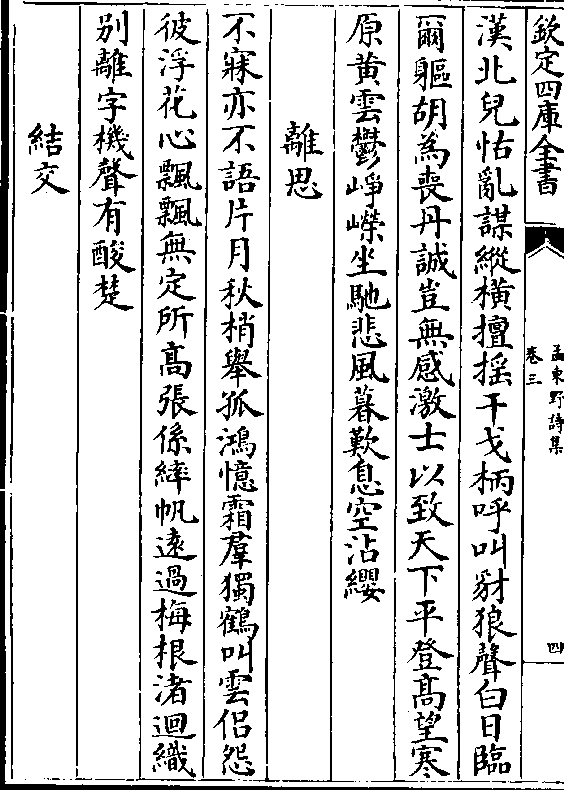 欽定四庫全書
孟東野詩集
卷三
四
漢北兒怙亂謀縱橫擅搖干戈柄呼叫豺狼聲白日臨
爾軀胡為喪丹誠豈無感激士以致天下平登高望寒
原黄雲鬱崢嶸坐馳悲風暮歎息空沾纓
離思
不寐亦不語片月秋梢舉孤鴻憶霜羣獨鶴叫雲侣怨
彼浮花心飄飄無定所高張係繂帆遠過梅根渚迴織
别離字機聲有酸楚
結交